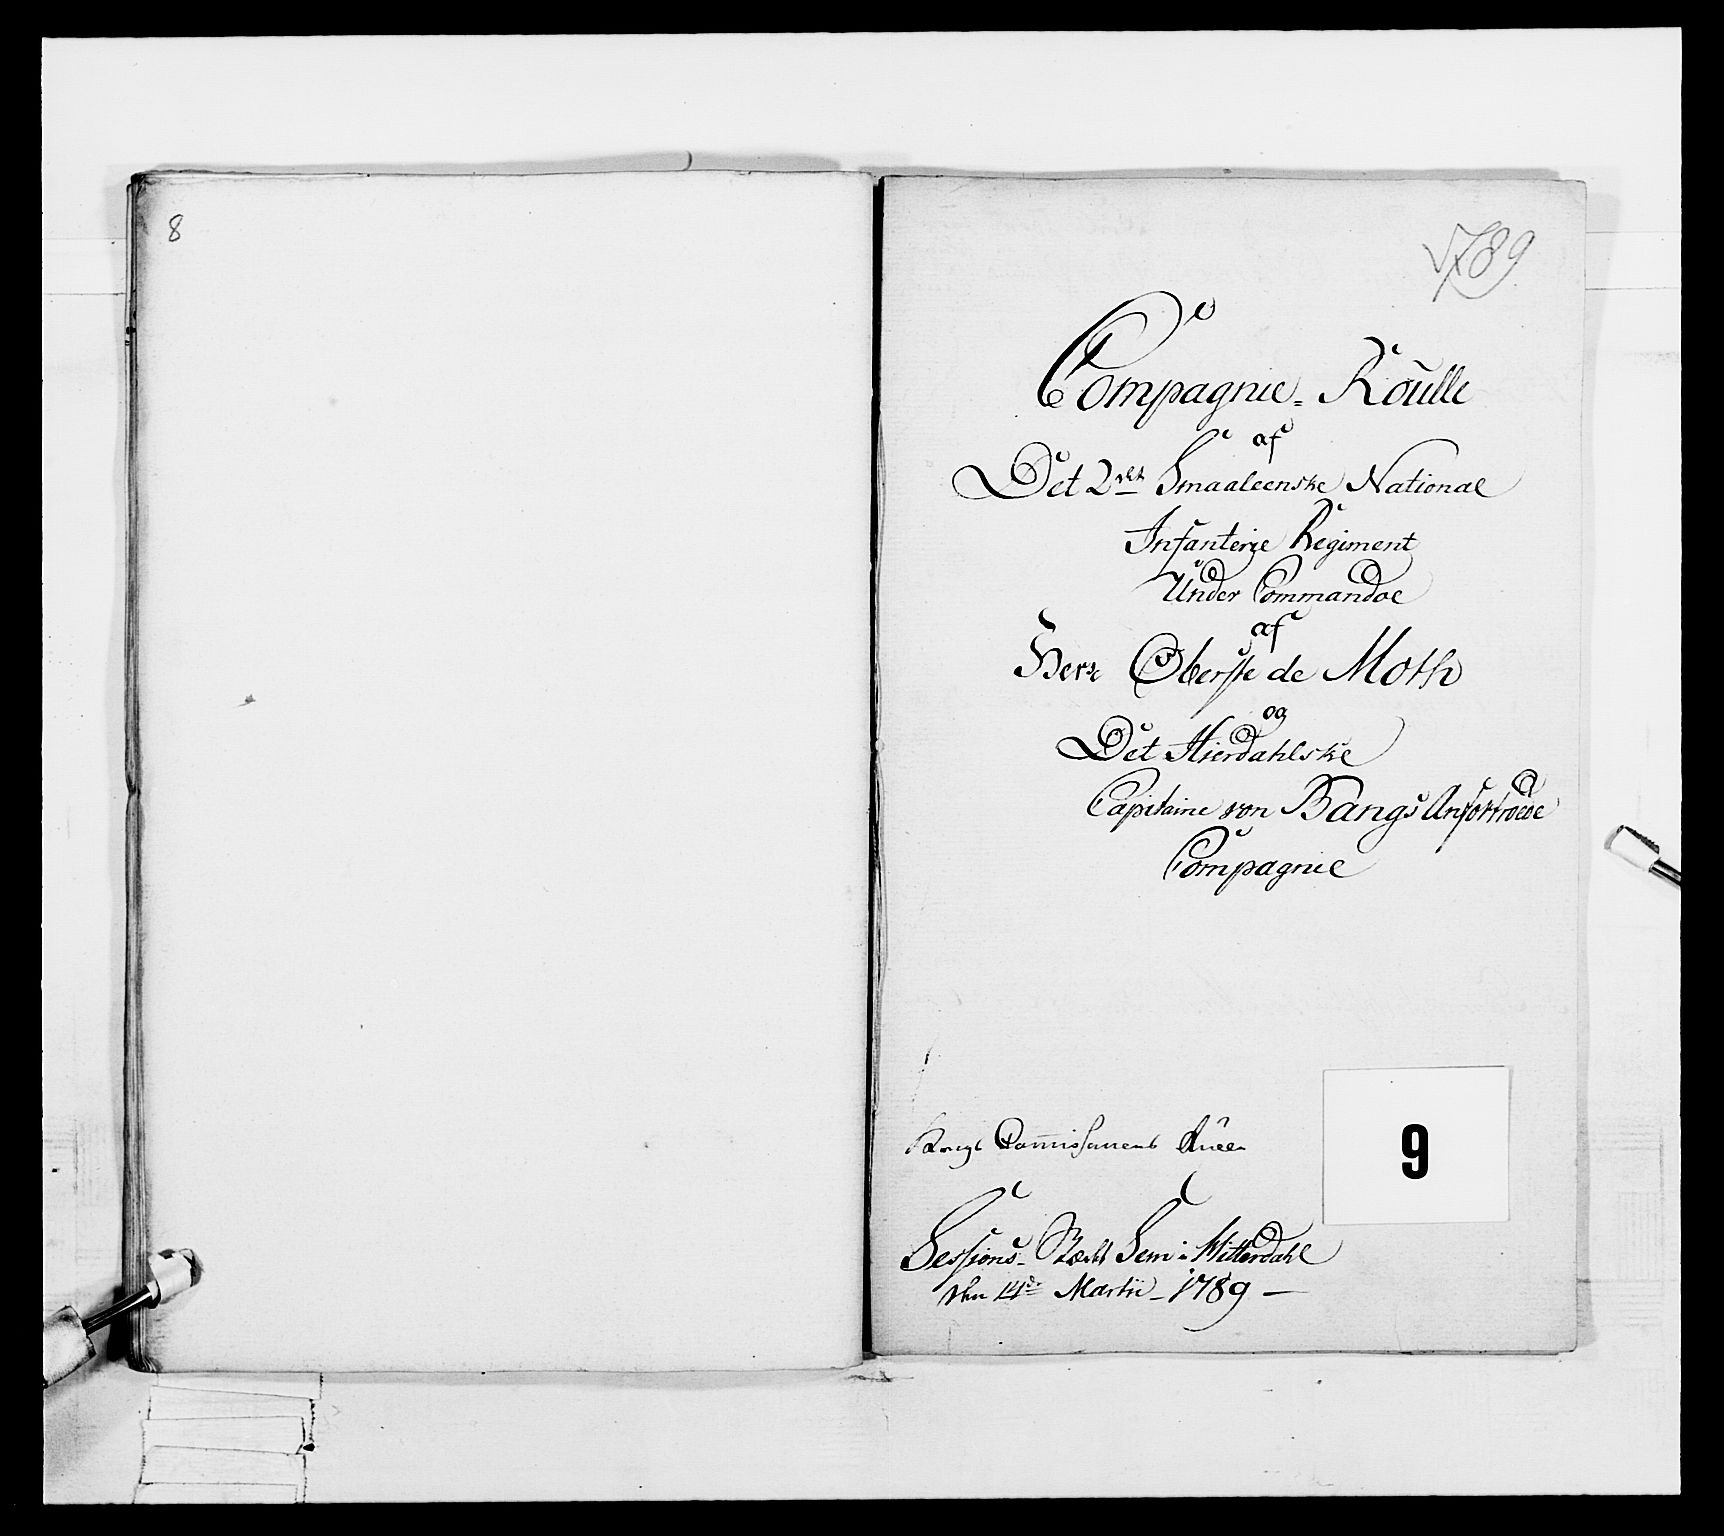 8
1789
Compagnie = Roulle
af
Det 2det Smaaleenske National
Infanterie Regiment
Under Commandoe
af
Herr Oberste de Moth
og
Det Hierdahlske
Capitaine von Bangs Anfortroede
Compagnie
Kongl Commissariets
9
Sessions- Sem i Hitterdahl
den 14de Martii - 1789 -